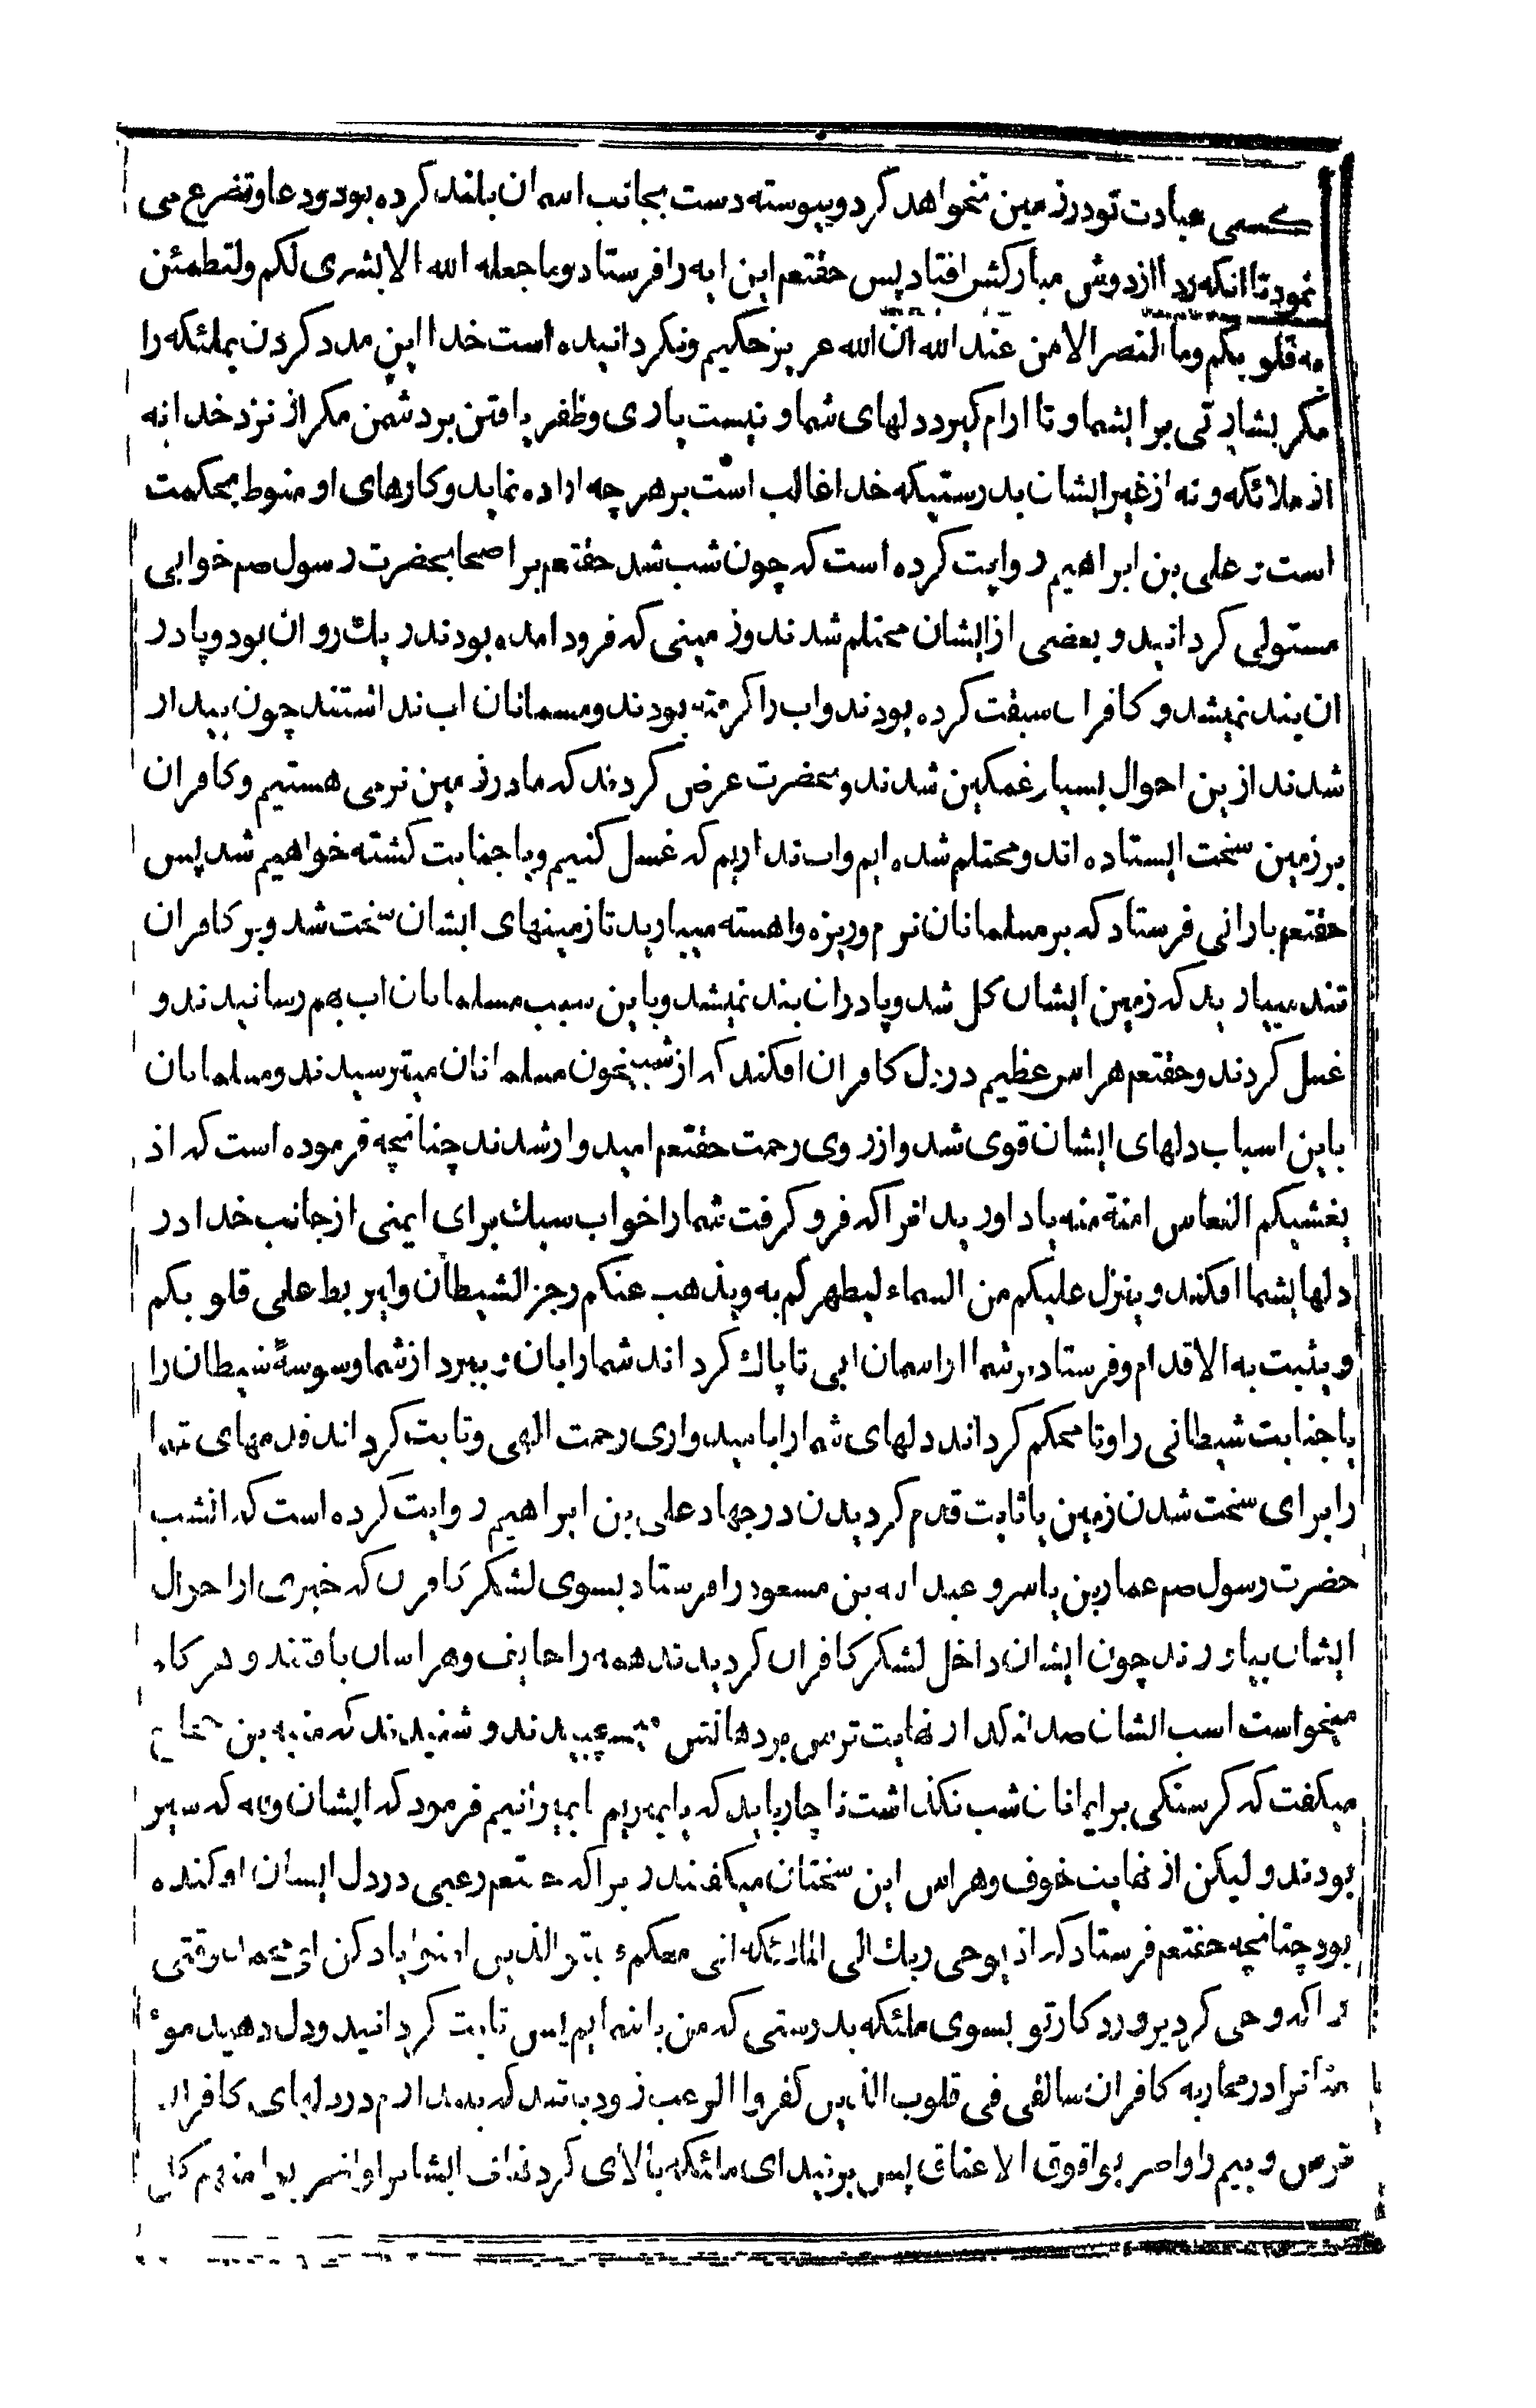 کسی عبادت تو در زمین نخواهد کرد و پیوسته دست بجانب اسمان بلند کرده بود و دعا و تضرع می
نمود تا انکه ردا از دوش مبارکش افتاد پس حقتعم این ایه را فرستاد وما جعله الله الا بشری لکم ولتطمئن
به قلوبکم وما النصر الا من عند الله ان الله عزیز حکیم ونکردانیده است خدا این مدد کردن بملئکه را
مکر بشارتی برایشما و تا ارام کیرد دلهای شما و نیست یاری وظفر یافتن بر دشمن مکر از نزد خدا نه
از ملائکه و نه از غیر ایشان بدرستیکه خدا غالب است بر هر چه اراده نماید و کارهای او منوط بحکمت
است و علی بن ابراهیم روایت کرده است که چون شب شد حقتعم بر اصحابحضرت رسول صم خوابی
مستولی کردانید و بعضی از ایشان محتلم شدند وزمینی که فرود امده بودند ریك روان بود و پا در
ان بند نمیشد و کافران سبقت کرده بودند واب را کرفته بودند و مسمانان اب نداشتند چون بیدار
شدند از ین احوال بسیار غمکین شدند و بحضرت عرض کردند که ما در زمین نرمی هستیم و کافران
بر زمین سخت ایستاده اند و محتلم شده ایم واب نداریم که غسل کنیم و با جنابت کشته خواهیم شد پس
حقتعم بارانی فرستاد که بر مسلمانان نرم و ریزه واهسته میبارید تا زمینهای ایشان سخت شد و بر کافران
تند میبارید که زمین ایشان کل شد و پا دران بند نمیشد و باین سبب مسلمانان اب بهم رسانیدند و
غسل کردند و حقتعم هراس عظیم در دل کافران افکند که از شبیخون مسلمانان میترسیدند و مسلمانان
باین اسباب دلهای ایشان قوی شد و از روی رحمت حقتعم امیدوار شدند چنانچه فرموده است که اذ
یغشیکم النعاس امنة منه یاد اورید انرا که فرو کرفت شما را خواب سبك برای ایمنی از جانب خدا در
دلهایشما افکند و ینزل علیکم من السماء لیطهرکم به ویذهب عنکم رجز الشیطان ولیربط علی قلوبکم
ویثبت به الاقدام و فرستاد بر شما از اسمان ابی تا پاك کرداند شما را بان و ببرد از شما وسوسۀ شیطان را
یا جنابت شیطانی را و تا محکم کرداند دلهای شما را بامیدواری رحمت الهی و ثابت کرداند قدمهای شما
را برای سخت شدن زمین یا ثابت قدم کردیدن در جهاد علی بن ابراهیم روایت کرده است که انشب
حضرت رسول صم عمار بن یاسر و عبد الله بن مسعود را فرستاد بسوی لشکر کافران که خبری از احوال
ایشان بیاورند چون ایشان داخل لشکر کافران کردیدند همه را خایف و هراسان یافتند و هرکاه
میخواست اسب ایشان صدا کند از نهایت ترس بر دهانش میچسبیدند و شنیدند که منبه بن حجاج
میکفت که کرسنکی برای مانان شب نکذاشت ناچار باید که بمیریم یا بمیرانیم فرمود که ایشان والله که سیر
بودند و لیکن از نهایت خوف وهراس این سخنان میکفتند زیرا که حقتعم رعبی در دل ایشان افکنده
بود چنانچه حقتعم فرستاد که اذ یوحی ربك الی الملائکه انی معکم فثبتوا الذین امنوا یاد کن ای محمد وقتی
را که وحی کرد پروردکار تو بسوی ملئکه بدرستی که من با شمایم پس ثابت کردانید و دل دهید مو
منانرا در محاربه کافران سالقی فی قلوب الذین کفروا الرعب زود باشد که بیندازم در دلهای کافران
ترس و بیم را واضربوا فوق الاعناق پس بزنید ای ملئکه بالای کردنهای ایشانرا واضربوا منهم کل